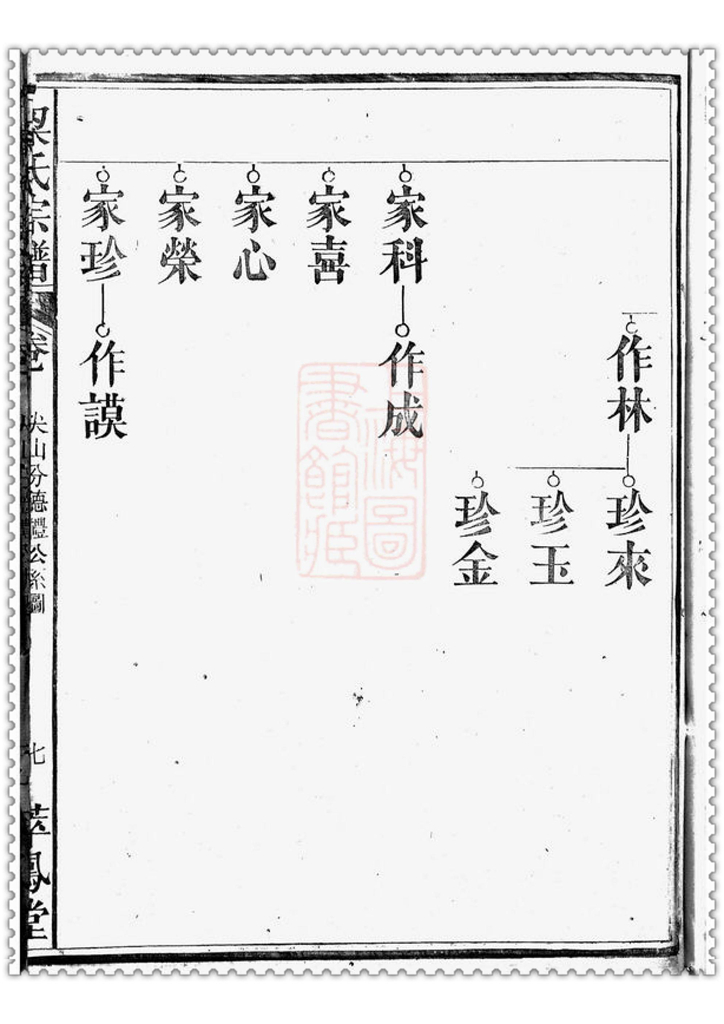 作林
珍來
珍玉
珍金
家科
作成
家喜
家心
家榮
家珍
作謨
梁氏宗譜
卷
尖山分德禮公系圖
七
萃鳳堂
上海圖書館藏